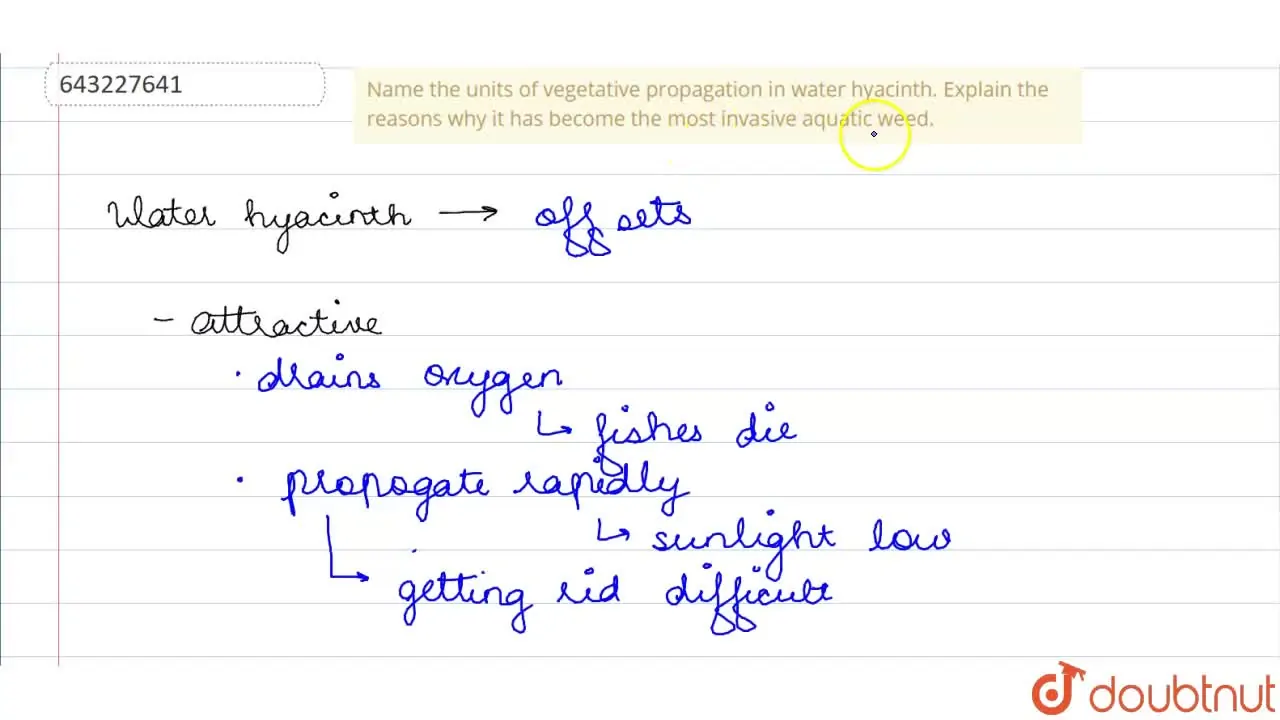 643227641
Name the units of vegetative propagation in water hyacinth. Explain the
reasons why it has become the most invasive aquatic weed.
Water hyacinth → offsets
- attractive
· drains oxygen
↳ fishes die
· propogate rapidly
↳ sunlight low
↳ getting rid difficult
doubtnut